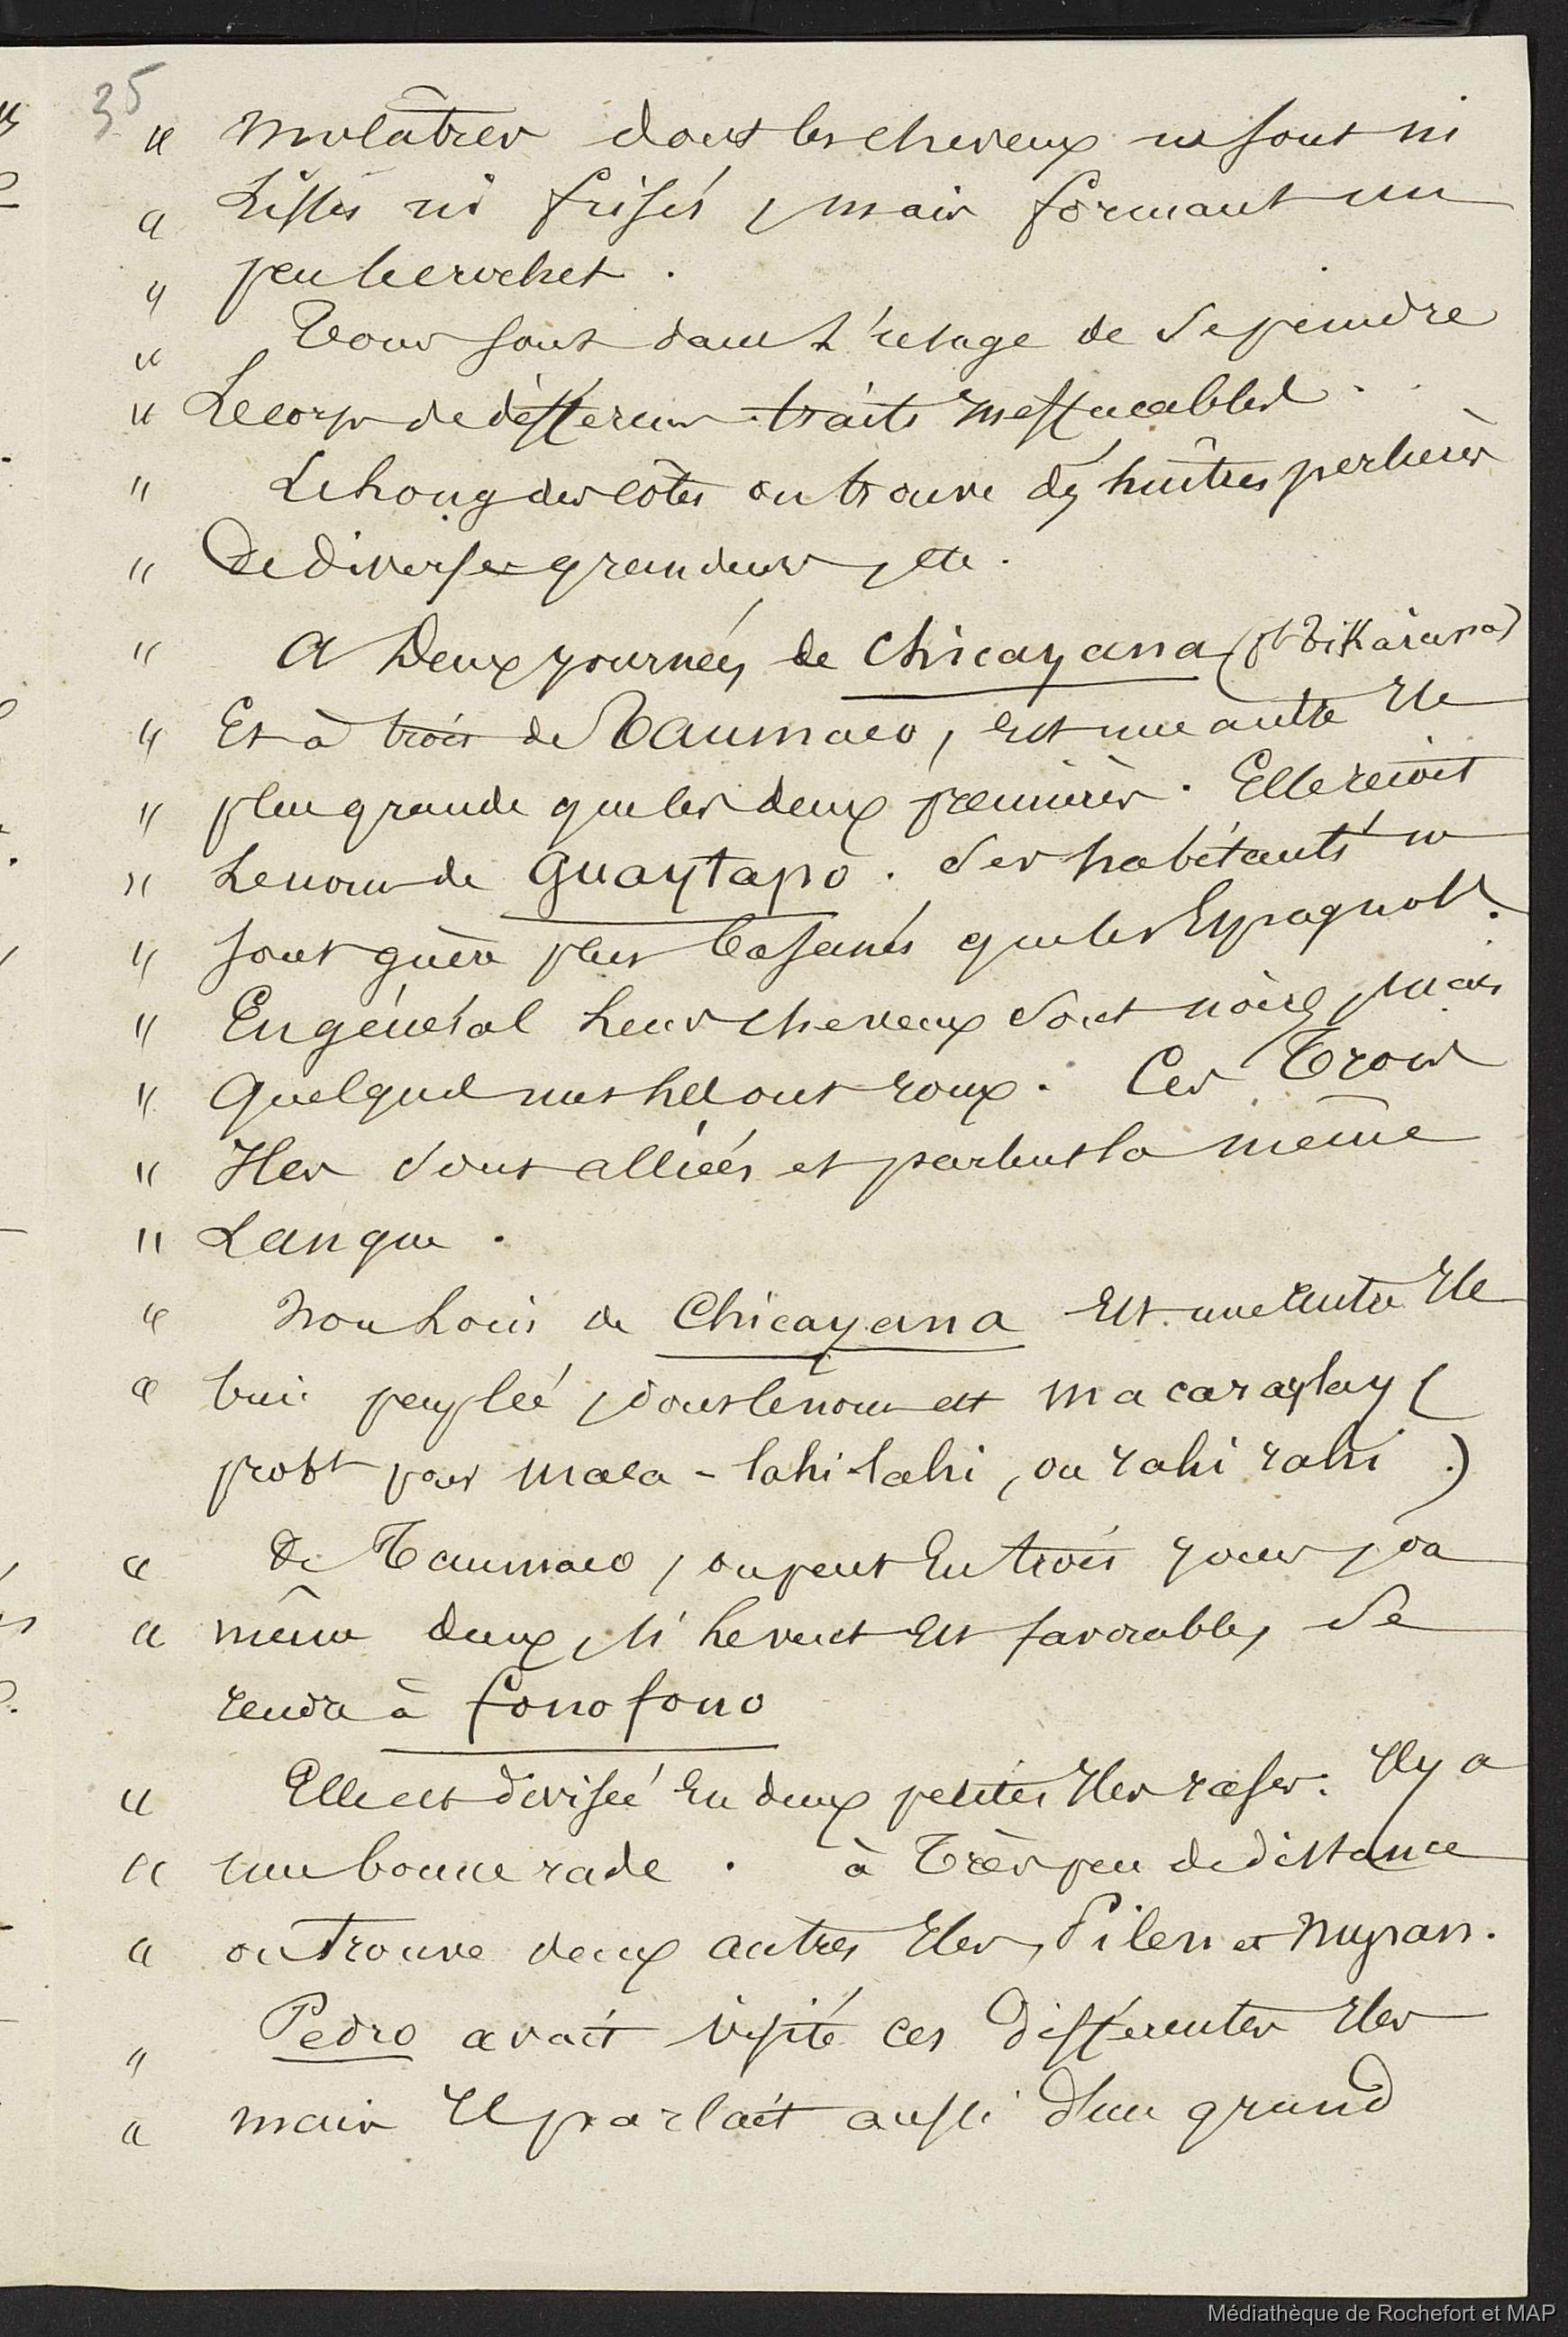 35
" molâtres dont les cheveux ne sont ni
" Lisses ni frisés, mais formant un
" peu le crochet.
" Tous sont dans L'usage de se peindre
" Le corps de différens traits ineffaçables.
" Le Long des côtes on trouve des huîtres perlières
" De diverses grandeurs, etc.
" A Deux journées de Chicayana (pt Tikaiana)
" Et à trois de Taumaco, est une autre Ile
" plus grande que les deux premières. Elle reçoit
" Le nom de Guaytapo. Ses habitants ne
" sont guère plus basanés que les Espagnols.
" En général Leurs cheveux sont noirs, mais
" Quelques uns Les ont roux. Ces Trois
" Iles sont alliées et parlent la même
" Langue.
" Non Loin de Chicayana Est une autre Ile
" bien peuplée, dont le nom est Macaraylay (
probt pour maca - lahi-lahi, ou rahi rahi.)
" De Taumaco, on peut En trois jours, ou
" même deux, si Le vent Est favorable, se
rendre à fonofono
" Elle est divisée En deux petites Iles rases. Il y a
" une bonne rade. à Très peu de distance
" on Trouve deux autres Iles, Pilen et Nupan.
" Pedro avait visité ces différentes Iles
" mais Il parlait aussi d'un grand
Médiathèque de Rochefort et MAP